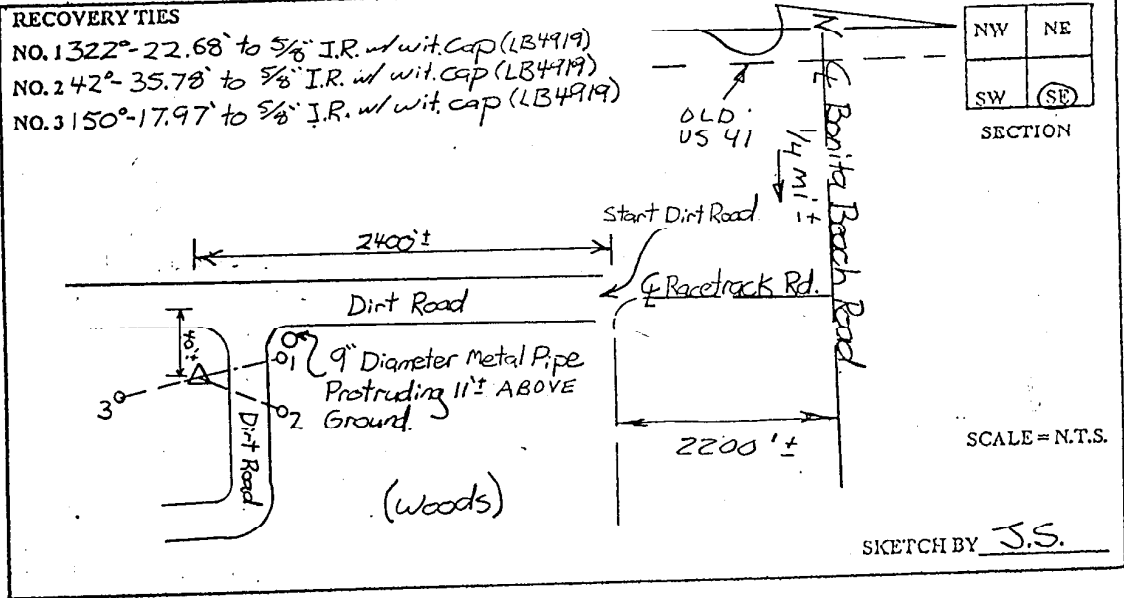 RECOVERY TIES
NO. 1 322°-22.68' to 5/8" I.R. w/ wit. cap (LB4919)
NO. 2 42°-35.78' to 5/8" I.R. w/ wit. cap (LB4919)
NO. 3 150°-17.97' to 5/8" I.R. w/ wit. cap (LB4919)
N
NW NE
SW SE
SECTION
OLD
US 41
1/4 mi ±
℄ Bonita Beach Road
Start Dirt Road
2400'±
℄ Racetrack Rd.
Dirt Road
40'±
1
9" Diameter Metal Pipe
Protruding 11'± ABOVE
Ground.
3
2
Dirt Road
2200'±
SCALE = N.T.S.
(Woods)
SKETCH BY J.S.